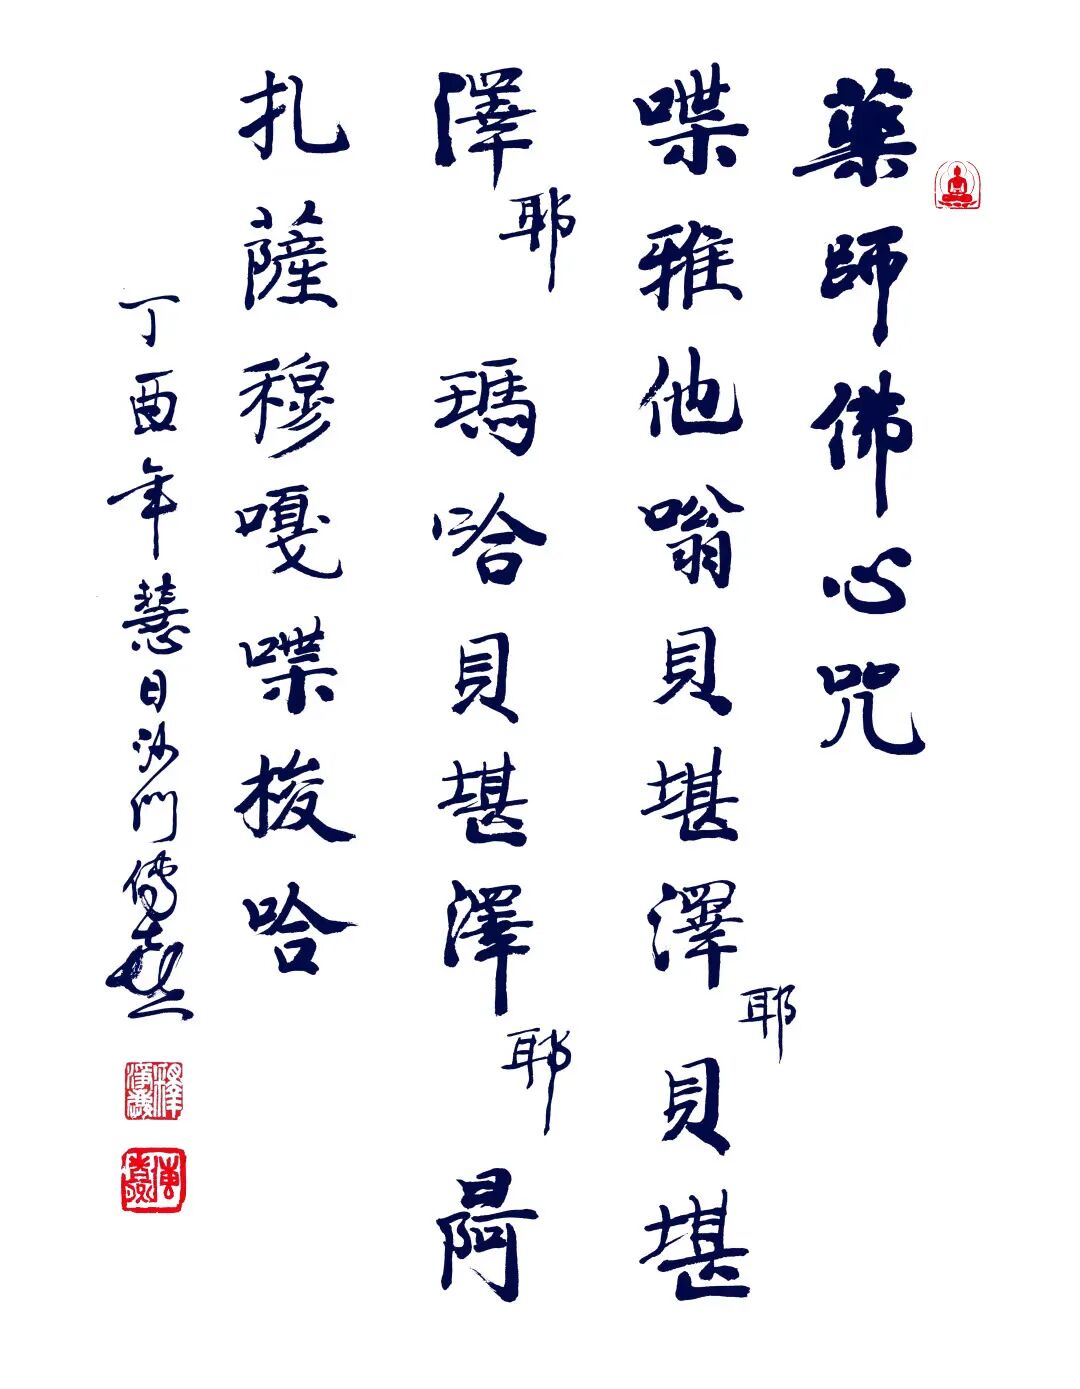 藥師佛心咒
喋雅他嗡貝堪澤耶貝堪
澤耶瑪哈貝堪澤耶日阿
扎薩穆嘎喋梭哈
丁酉年慧日沙門傳喜
傳喜